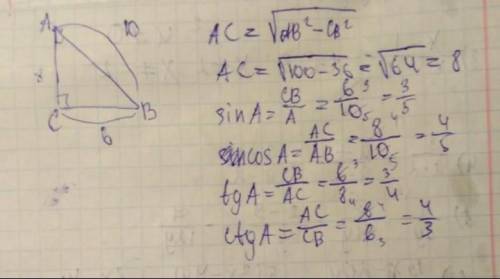 A 10
x
C B
6
AC = √AB² - CB²
AC = √100 - 36 = √64 = 8
sin A = CB/A = 6 3/10 5 = 3/5
cos A = AC/AB = 8 4/10 5 = 4/5
tg A = CB/AC = 6 3/8 4 = 3/4
ctg A = AC/CB = 8 4/6 3 = 4/3